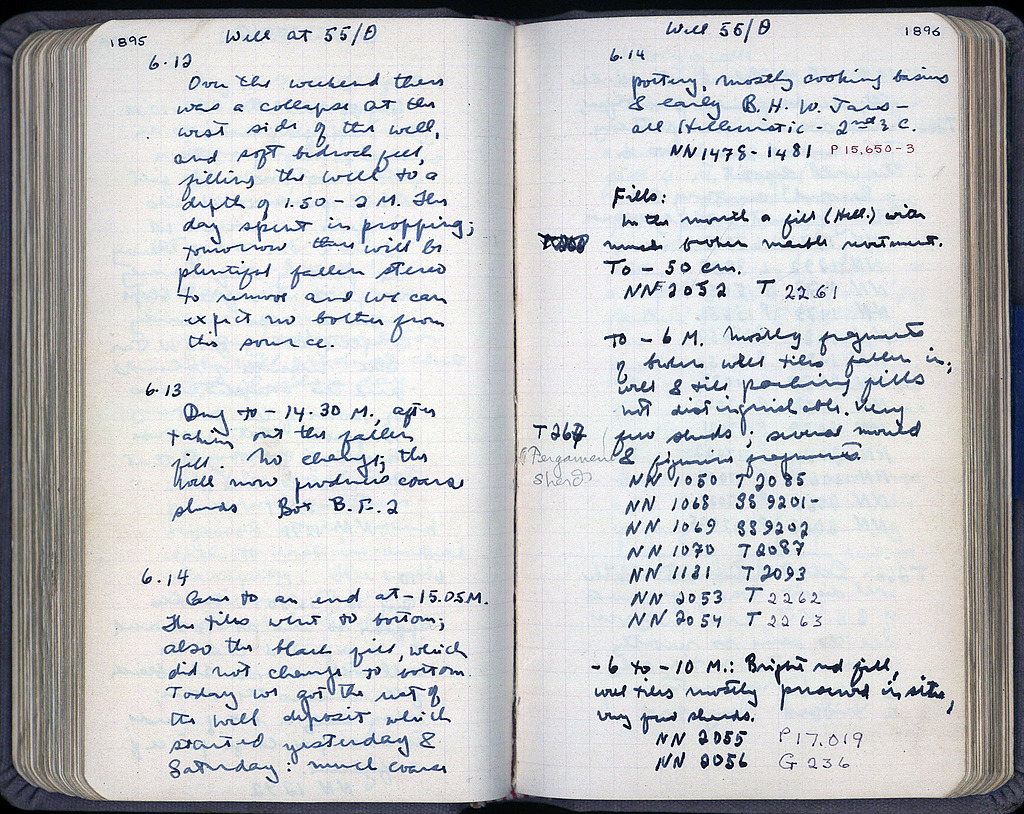 1895
Well at 55/Θ
6.12
Over the weekend there
was a collapse at the
west side of the well,
and soft bedrock fell,
filling the well to a
depth of 1.50 - 2 M. This
day spent in propping;
tomorrow there will be
plentiful fallen stereo
to remove and we can
expect no bother from
this source.
6.13
Dug to - 14.30 M, after
taking out the fallen
fill. No change; the
well now produces coarse
sherds Box B.F.2
6.14
Came to an end at - 15.05 M.
The tiles went to bottom;
also the black fill, which
did not change to bottom.
Today we got the rest of
the well deposit which
started yesterday &
Saturday: much coarse
Well 55/Θ
1896
6.14
pottery, mostly cooking basins
& early B. H. W. Jars -
all Hellenistic - 2nd & C.
NN 1478 - 1481 P 15,650-3
Fills:
In the mouth a fill (Hell.) with
much broken marble revetment.
To - 50 cm.
NN 2052 T 2261
To - 6 M. Mostly fragments
of broken well tiles fallen in;
well & tile packing fills
not distinguishable. Very
T 267
few sherds; several mould
Pergamene
& figurine fragments
Sherds
NN 1050 T 2085
NN 1068 SS 9201-
NN 1069 SS 9202
NN 1070 T 2087
NN 1131 T 2093
NN 2053 T 2262
NN 2054 T 2263
- 6 to - 10 M.: Bright red fill,
well tiles mostly preserved in situ,
very few sherds.
NN 2055 P 17,019
NN 2056 G 236